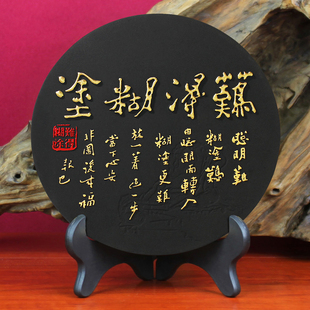 難得糊塗
聰明難
糊塗難
由聰明而轉入
糊塗更難
放一著退一步
當下心安
非圖後來福
報也
難得糊塗